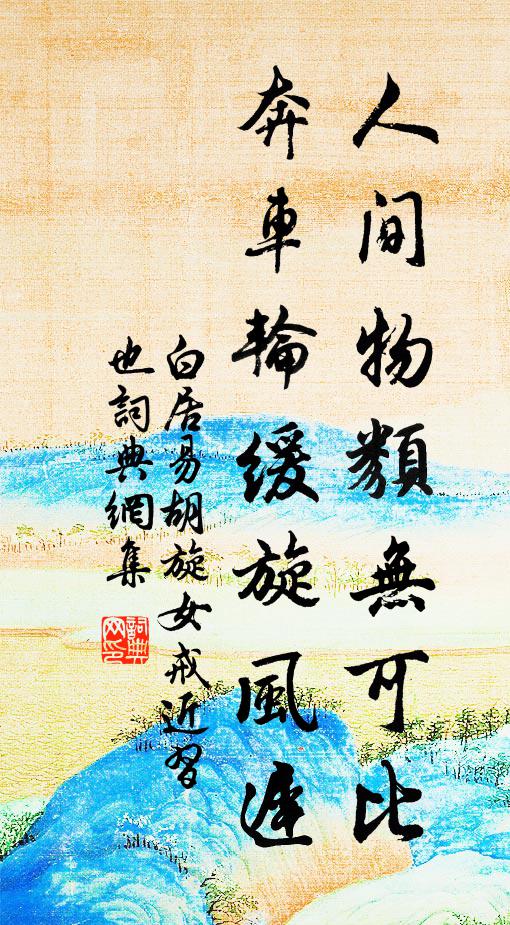 人間物類無可比
奔車輪緩旋風遲
白居易胡旋女戒近習
也詞典網集
詞典
网印